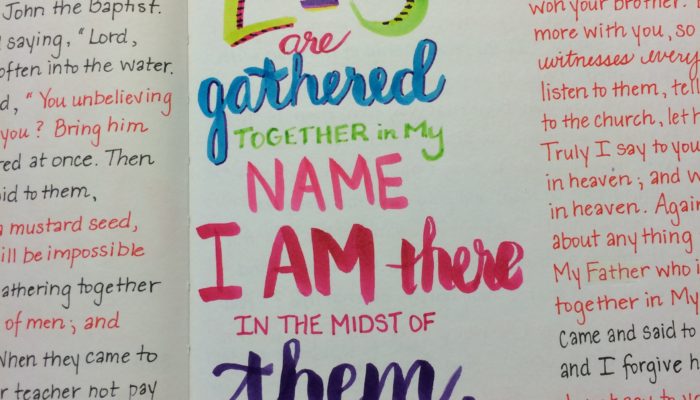 John the Baptist.
saying, "Lord,
often into the water.
"You unbelieving
you? Bring him
at once. Then
to them,
mustard seed,
be impossible
gathering together
of men; and
When they came to
teacher not pay
are
gathered
TOGETHER in My
NAME
I AM there
IN THE MIDST OF
them.
won your brother.
more with you, so
witnesses every
listen to them, tell
to the church, let h
Truly I say to you
in heaven; and w
in heaven. Again
about anything
My Father who i
together in My
Came and said to
and I forgive h